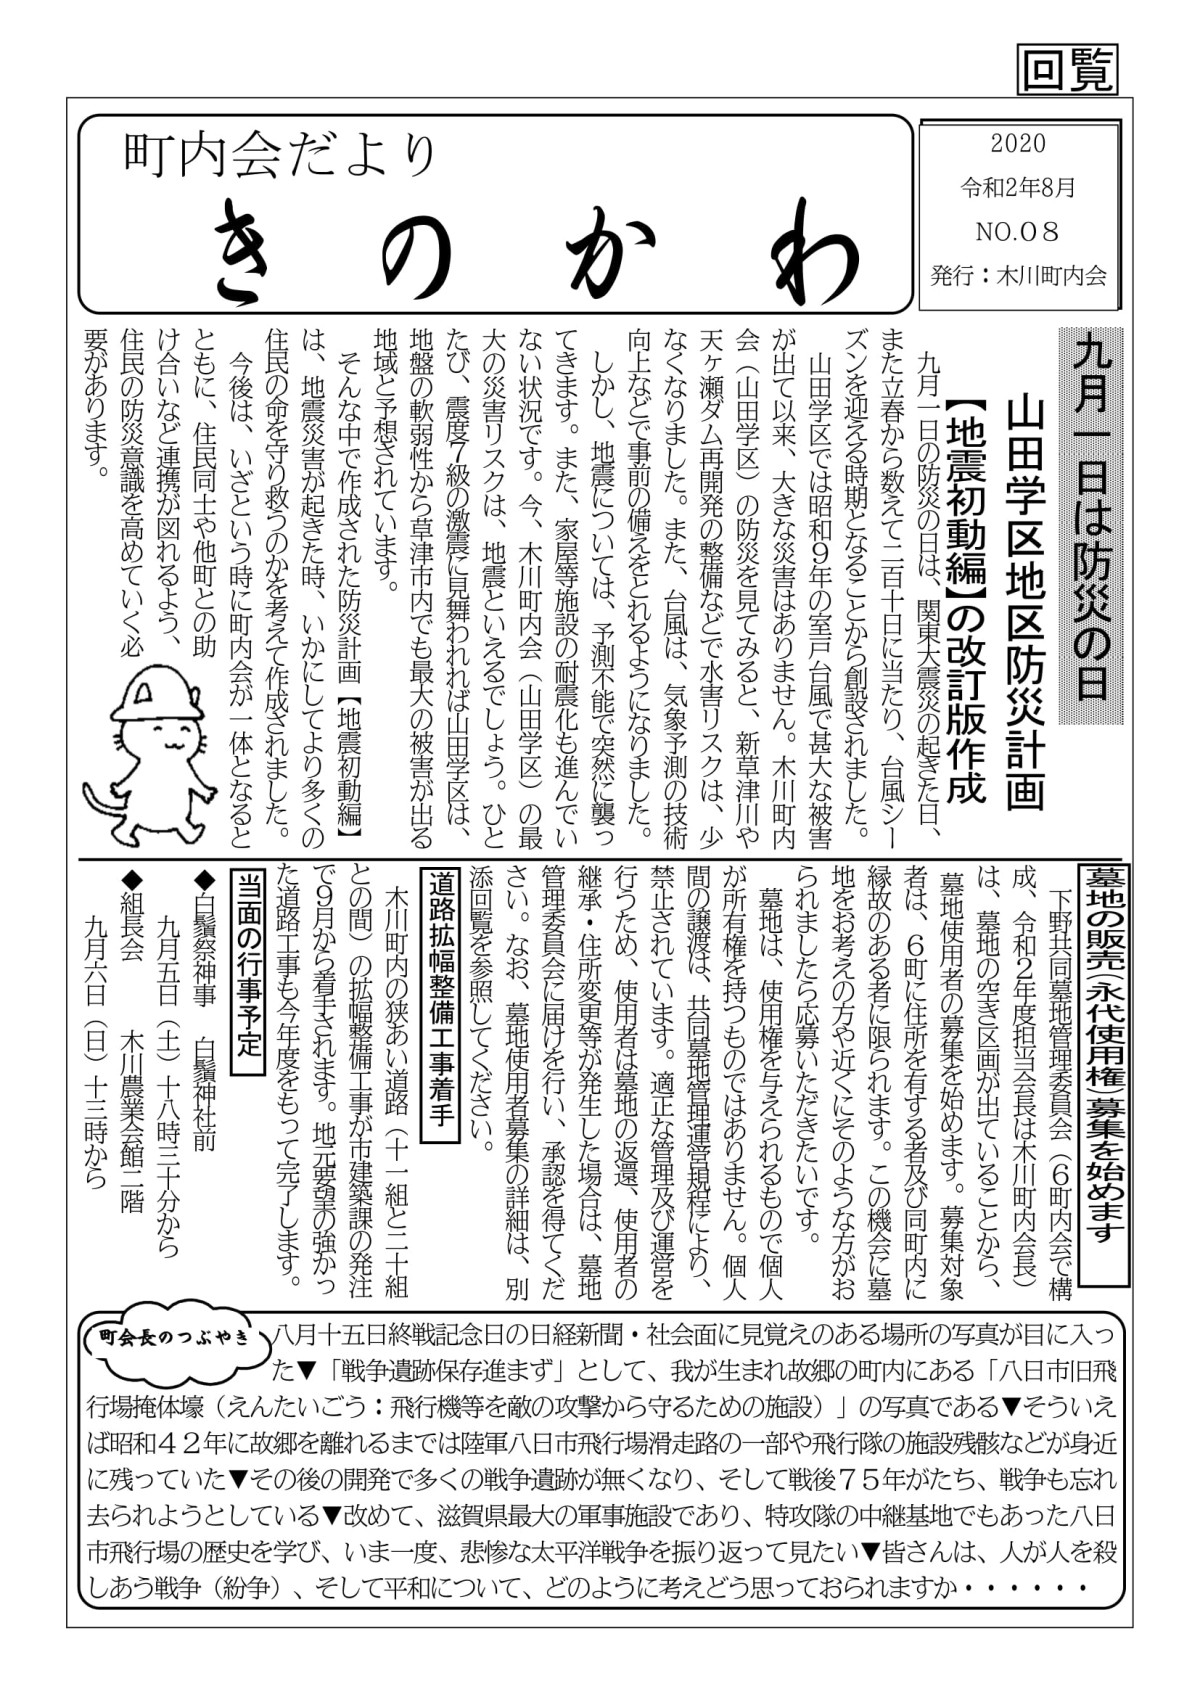 回覧
町内会だより
きのかわ
2020
令和2年8月
NO.０８
発行：木川町内会
九月一日は防災の日
山田学区地区防災計画
【地震初動編】の改訂版作成
九月一日の防災の日は、関東大震災の起きた日、
また立春から数えて二百十日に当たり、台風シー
ズンを迎える時期となることから創設されました。
山田学区では昭和９年の室戸台風で甚大な被害
が出て以来、大きな災害はありません。木川町内
会（山田学区）の防災を見てみると、新草津川や
天ヶ瀬ダム再開発の整備などで水害リスクは、少
なくなりました。また、台風は、気象予測の技術
向上などで事前の備えをとれるようになりました。
しかし、地震については、予測不能で突然に襲っ
てきます。また、家屋等施設の耐震化も進んでい
ない状況です。今、木川町内会（山田学区）の最
大の災害リスクは、地震といえるでしょう。ひと
たび、震度７級の激震に見舞われれば山田学区は、
地盤の軟弱性から草津市内でも最大の被害が出る
地域と予想されています。
そんな中で作成された防災計画【地震初動編】
は、地震災害が起きた時、いかにしてより多くの
住民の命を守り救うのかを考えて作成されました。
今後は、いざという時に町内会が一体となると
ともに、住民同士や他町との助
け合いなど連携が図れるよう、
住民の防災意識を高めていく必
要があります。
墓地の販売（永代使用権）募集を始めます
下野共同墓地管理委員会（６町内会で構
成、令和２年度担当会長は木川町内会長）
は、墓地の空き区画が出ていることから、
墓地使用者の募集を始めます。募集対象
者は、６町に住所を有する者及び同町内に
縁故のある者に限られます。この機会に墓
地をお考えの方や近くにそのような方がお
られましたら応募いただきたいです。
墓地は、使用権を与えられるもので個人
が所有権を持つものではありません。個人
間の譲渡は、共同墓地管理運営規程により、
禁止されています。適正な管理及び運営を
行うため、使用者は墓地の返還、使用者の
継承・住所変更等が発生した場合は、墓地
管理委員会に届けを行い、承認を得てくだ
さい。なお、墓地使用者募集の詳細は、別
添回覧を参照してください。
道路拡幅整備工事着手
木川町内の狭あい道路（十一組と二十組
との間）の拡幅整備工事が市建築課の発注
で９月から着手されます。地元要望の強かっ
た道路工事も今年度をもって完了します。
当面の行事予定
◆白鬚祭神事　白鬚神社前
九月五日（土）十八時三十分から
◆組長会　木川農業会館二階
九月六日（日）十三時から
町会長のつぶやき
八月十五日終戦記念日の日経新聞・社会面に見覚えのある場所の写真が目に入っ
た▼「戦争遺跡保存進まず」として、我が生まれ故郷の町内にある「八日市旧飛
行場掩体壕（えんたいごう：飛行機等を敵の攻撃から守るための施設）」の写真である▼そういえ
ば昭和４２年に故郷を離れるまでは陸軍八日市飛行場滑走路の一部や飛行隊の施設残骸などが身近
に残っていた▼その後の開発で多くの戦争遺跡が無くなり、そして戦後７５年がたち、戦争も忘れ
去られようとしている▼改めて、滋賀県最大の軍事施設であり、特攻隊の中継基地でもあった八日
市飛行場の歴史を学び、いま一度、悲惨な太平洋戦争を振り返って見たい▼皆さんは、人が人を殺
しあう戦争（紛争）、そして平和について、どのように考えどう思っておられますか・・・・・・